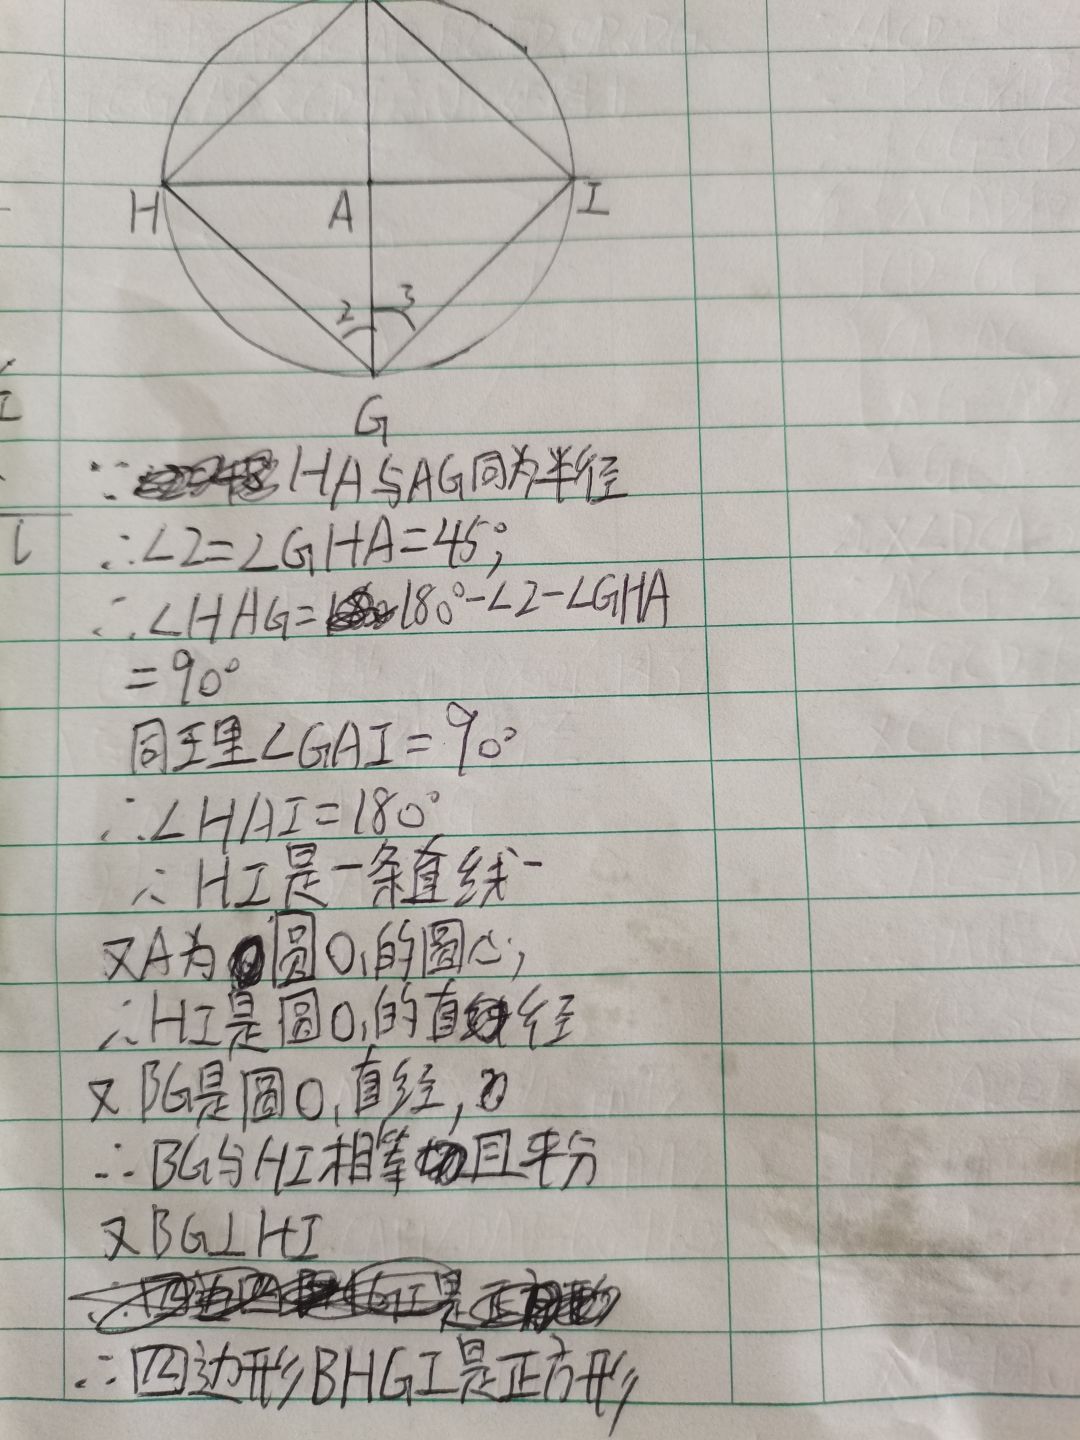 H A I
2 3
G
∵HA与AG同为半径
∴∠2=∠GHA=45°;
∴∠HAG=180°-∠2-∠GHA
=90°
同理∠GAI=90°
∴∠HAI=180°
∴HI是一条直线
又A为圆O₁的圆心;
∴HI是圆O₁的直径
又BG是圆O₁直径,
∴BG与HI相等且平分
又BG⊥HI
∴四边形BHGI是正方形